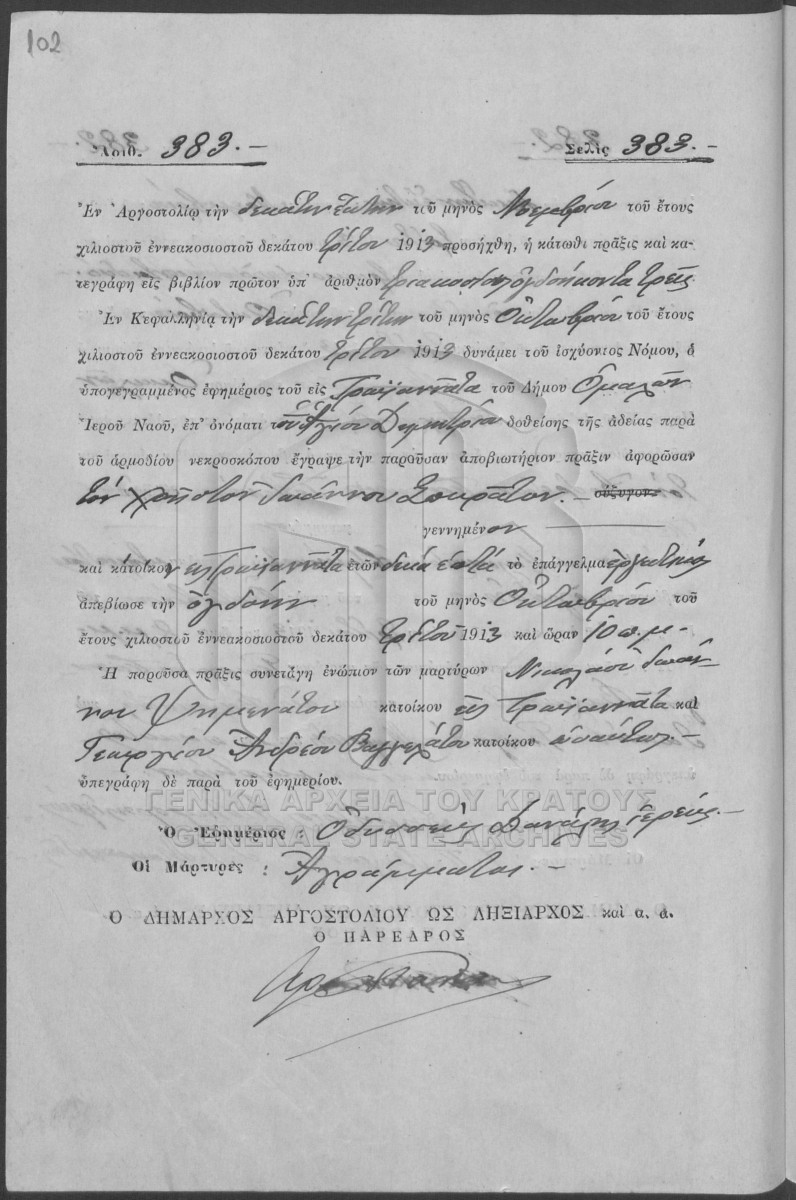 102
Ἀριθ. 383.—
Σελὶς 383.—
Ἐν Ἀργοστολίῳ τὴν δεκάτην ἕκτην τοῦ μηνὸς Νοεμβρίου τοῦ ἔτους
χιλιοστοῦ ἐννεακοσιοστοῦ δεκάτου τρίτου 1913 προσήχθη, ἡ κάτωθι πρᾶξις καὶ κα-
τεγράφη εἰς βιβλίον πρῶτον ὑπ' ἀριθμὸν τριακόσια ὀγδοήκοντα τρεῖς
Ἐν Κεφαλληνίᾳ τὴν δεκάτην τρίτην τοῦ μηνὸς Ὀκτωβρίου τοῦ ἔτους
χιλιοστοῦ ἐννεακοσιοστοῦ δεκάτου τρίτου 1913 δυνάμει τοῦ ἰσχύοντος Νόμου, ὁ
ὑπογεγραμμένος ἐφημέριος τοῦ εἰς Τρωϊαννᾶτα τοῦ Δήμου Ὁμαλῶν
Ἱεροῦ Ναοῦ, ἐπ' ὀνόματι τοῦ Ἁγίου Δημητρίου δοθείσης τῆς ἀδείας παρὰ
τοῦ ἁρμοδίου νεκροσκόπου ἔγραψε τὴν παροῦσαν ἀποβιωτήριον πρᾶξιν ἀφορῶσαν
τὸν Χρῆστον Ἰωάννου Σωκράτου.— σύζυγον
γεννημένον
καὶ κάτοικον εἰς Τρωϊαννᾶτα ἐτῶν δέκα ἑπτά τὸ ἐπάγγελμα ἐργατικὸς
ἀπεβίωσε τὴν ὀγδόην τοῦ μηνὸς Ὀκτωβρίου τοῦ
ἔτους χιλιοστοῦ ἐννεακοσιοστοῦ δεκάτου τρίτου 1913 καὶ ὥραν 10 π.μ.—
Ἡ παροῦσα πρᾶξις συνετάγη ἐνώπιον τῶν μαρτύρων Νικολάου Ἰωάν-
νου Ψημενάτου κατοίκου εἰς Τρωϊαννᾶτα καὶ
Γεωργίου Ἀνδρέου Βαγγελάτου κατοίκου ὡσαύτως.—
ὑπεγράφη δὲ παρὰ τοῦ ἐφημερίου.
ΓΕΝΙΚΑ ΑΡΧΕΙΑ ΤΟΥ ΚΡΑΤΟΥΣ
GENERAL STATE ARCHIVES
Ὁ Ἐφημέριος : Ὀδυσσεὺς Δανάλης ἱερεύς.—
Οἱ Μάρτυρες : Ἀγράμματοι.—
Ο ΔΗΜΑΡΧΟΣ ΑΡΓΟΣΤΟΛΙΟΥ ΩΣ ΛΗΞΙΑΡΧΟΣ καὶ α. ἀ.
Ο ΠΑΡΕΔΡΟΣ